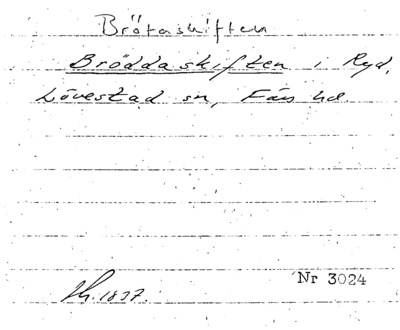 Brötaskiften
Bröddaskiften i Ryd,
Lövestad sn, Färs hd.
Nr 3024
1837.